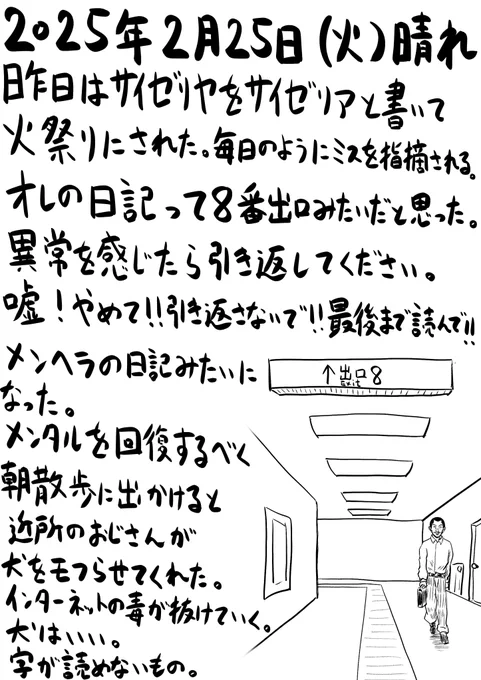 2025年2月25日(火)晴れ
昨日はサイゼリヤをサイゼリアと書いて
火祭りにされた。毎日のようにミスを指摘される。
オレの日記って8番出口みたいだと思った。
異常を感じたら引き返してください。
嘘!やめて!!引き返さないで!!最後まで読んで!!
メンヘラの日記みたいに
なった。
メンタルを回復するべく
朝散歩に出かけると
近所のおじさんが
犬をモフらせてくれた。
インターネットの毒が抜けていく。
犬はいい。
字が読めないもの。
↑出口8
Exit